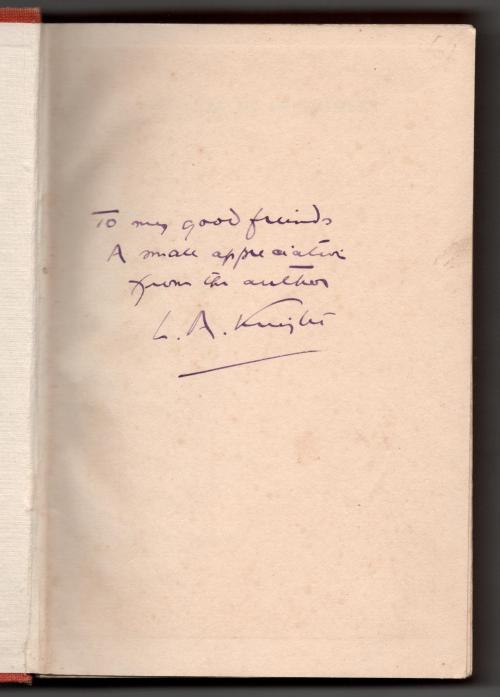 To my good friends
A small appreciation
from the author
L. A. Knight